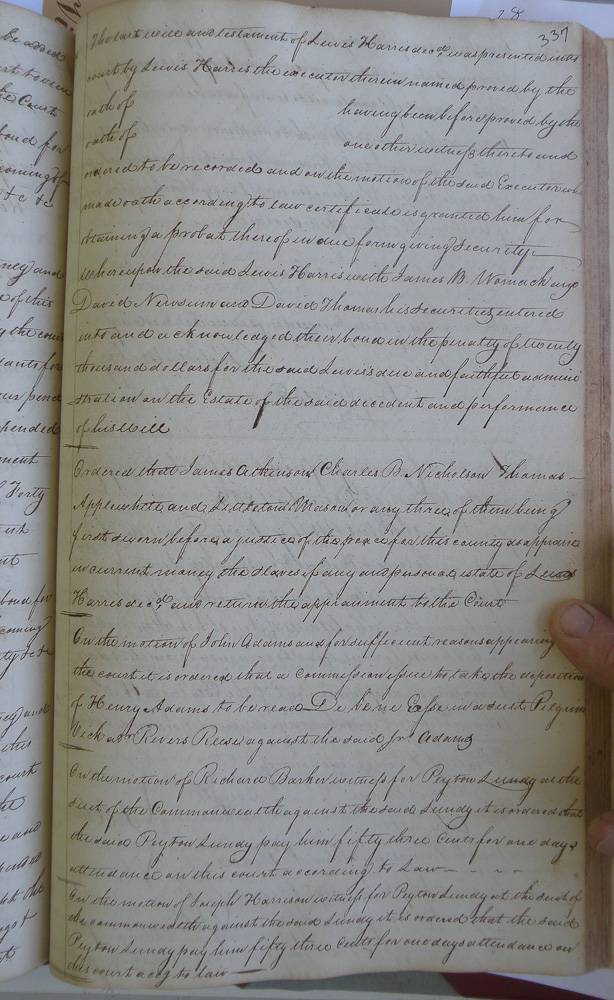 337
The last will and testament of Lewis Harris decd. was presented into
court by Lewis Harris the executor therein named proved by the
oath of having been before proved by the
oath of one other witness thereto and
ordered to be recorded and on the motion of the said Executor who
made oath according to law certificate is granted him for
obtaining a probat thereof in due form giving Security
Whereupon the said Lewis Harris with James B. Womack and
David Newsum and David Thomas his securities entered
into and acknowledged their bond in the penalty of twenty
thousand dollars for the said Lewis's due and faithful admini
stration on the Estate of the said decedent and performance
of his Will
Ordered that James Atkinson Charles B. Nicholson Thomas
Applewhite and Littleton Mason or any three of them being
first sworn before a justice of the peace for this county do appraise
in current money the slaves if any and personal estate of Lewis
Harris decd. and return the appraisment to the Court
On the motion of John Adams and for sufficient reasons appearing
the court it is ordered that a commission issue to take the deposition
of Henry Adams to be read De bene Esse in a suit Pilgrim
Vick assee Rivers Reese against the said Jno. Adams
On the motion of Richard Barker witness for Peyton Lundy at the
suit of the Commonwealth against the said Lundy it is ordered that
the said Peyton Lundy pay him fifty three Cents for one days
attendance on this court according to Law
On the motion of Joseph Harrison witness for Peyton Lundy at the suit of
the commonwealth against the said Lundy it is ordered that the said
Peyton Lundy pay him fifty three Cents for one days attendance on
this court accg to law